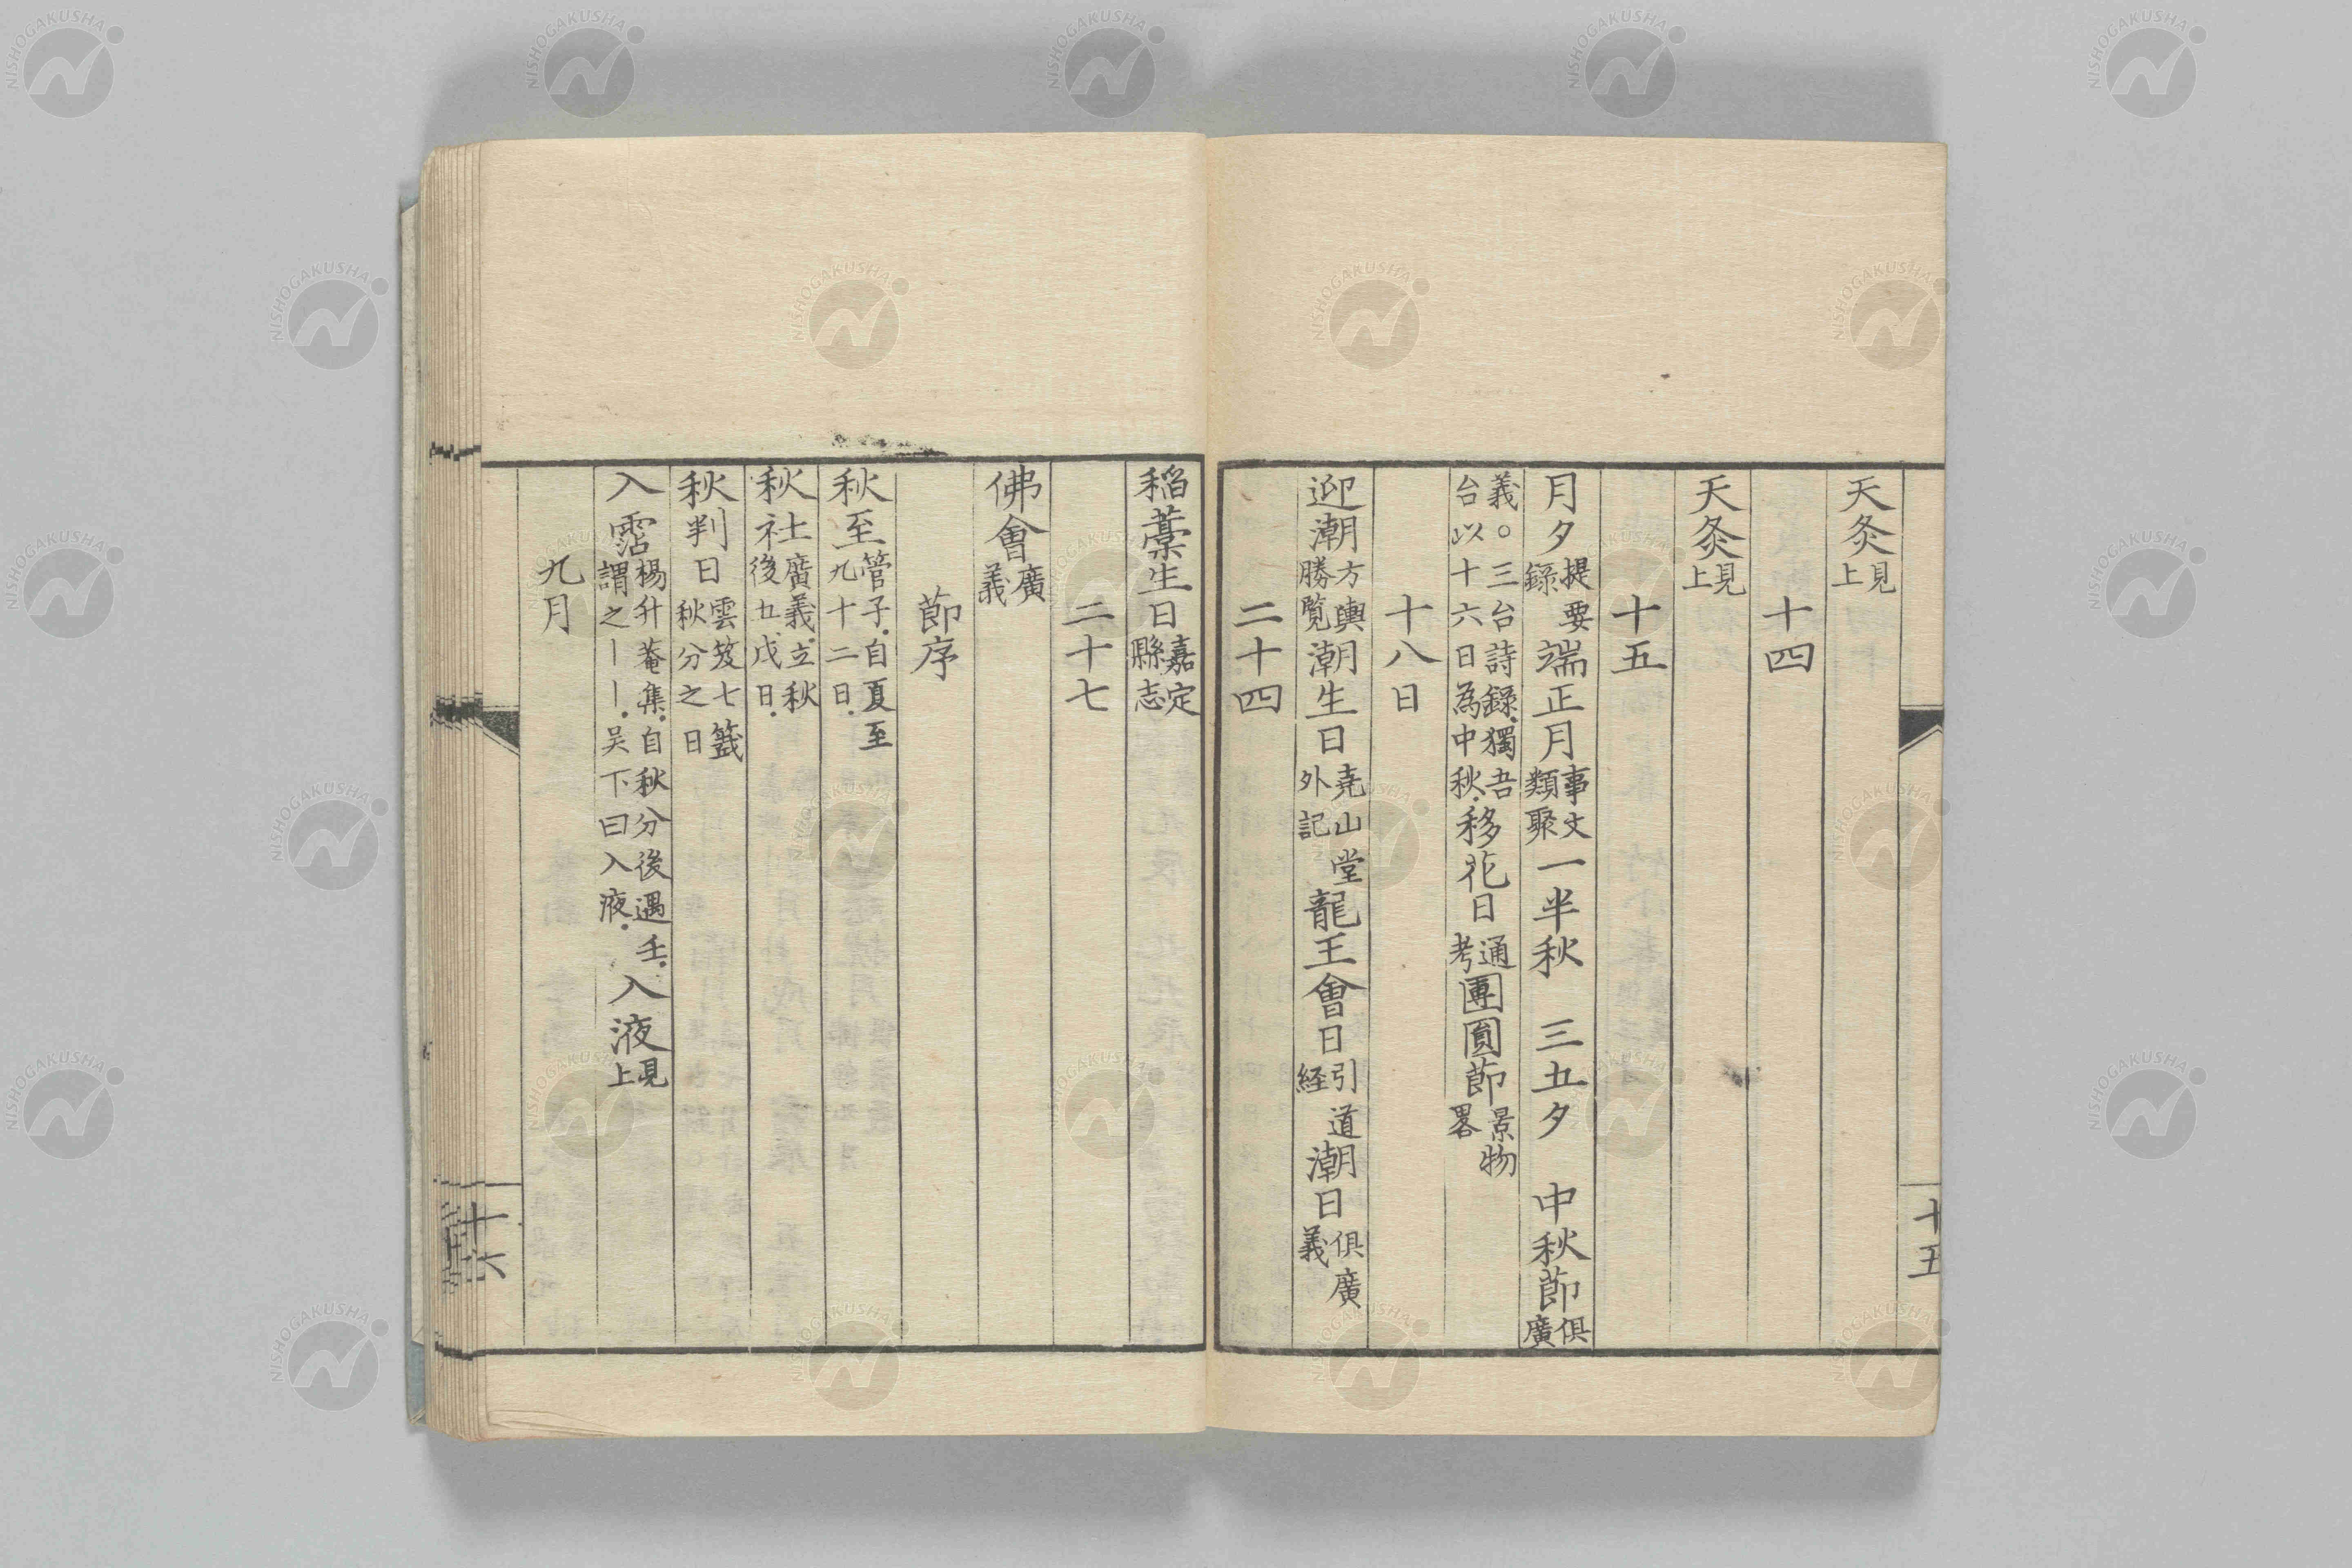 天灸見上
十四
天灸見上
十五
月夕提要錄端正月事文類聚一半秋 三五夕 中秋節俱廣
義○三台詩錄獨吾台以十六日為中秋移花日通考團圓節景物畧
十八日
迎潮方輿勝覧潮生日堯山堂外記龍王會日引道経潮日俱廣義
二十四
十五
稻藁生日嘉定縣志
二十七
佛會廣義
節序
秋至管子自夏至九十二日
秋社廣義立秋後五戊日
秋判日雲笈七籤秋分之日
入霑楊升菴集自秋分後遇壬謂之｜｜吴下曰入液入液見上
九月
十六
NISHOGAKUSHA